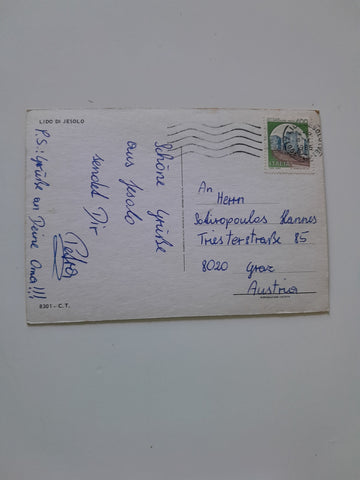 LIDO DI JESOLO
Schöne Grüße
aus Jesolo
sendet Dir
Petra
P.S.: Grüße an Deine Oma!!!
8301 - C.T.
ITALIA
An
Herrn
Sotiropoulos Hannes
Triesterstraße 85
8020 Graz
Austria